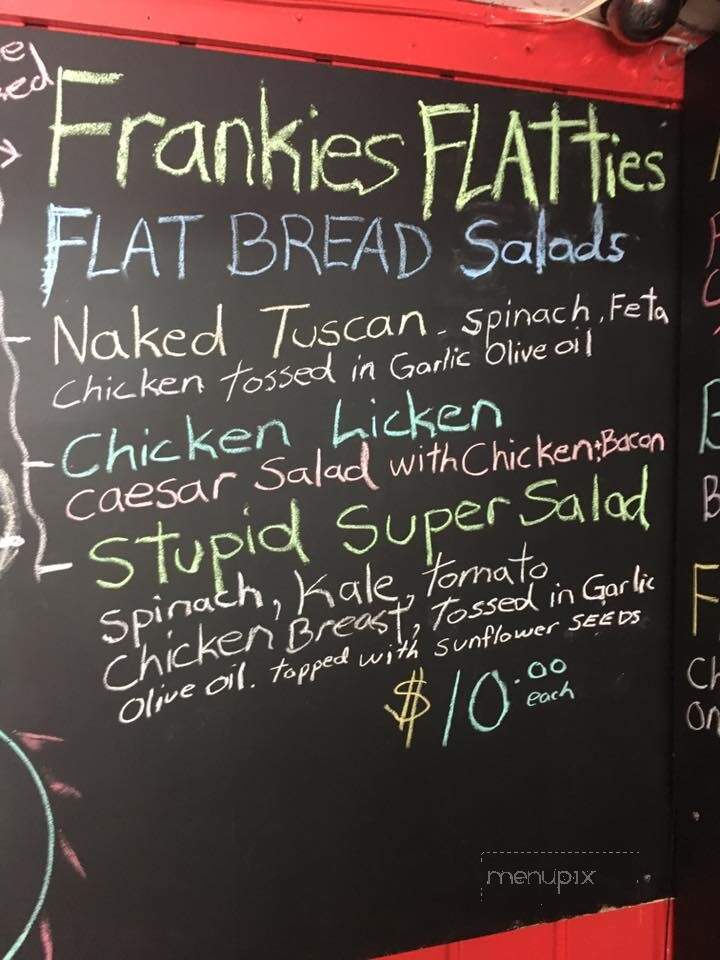 Frankies FLATties
FLAT BREAD Salads
- Naked Tuscan - spinach, Feta
Chicken tossed in Garlic Olive oil
- Chicken Licken
Caesar Salad with Chicken + Bacon
- Stupid Super Salad
Spinach, Kale, Tomato
Chicken Breast, Tossed in Garlic
Olive oil. topped with sunflower SEEDS
$10.00
each
menupix